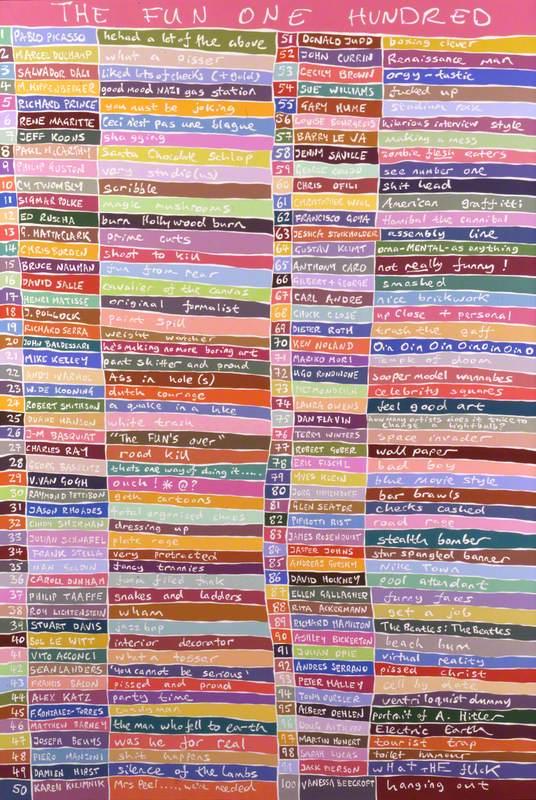 THE FUN ONE HUNDRED
1 PABLO PICASSO he had a lot of the above
2 MARCEL DUCHAMP what a pisser
3 SALVADOR DALI liked lots of checks (+ gold)
4 M. KIPPENBERGER good mood NAZI gas station
5 RICHARD PRINCE you must be joking
6 RENE MAGRITTE Ceci n'est pas une blague
7 JEFF KOONS shagging
8 PAUL McCARTHY Santa Chocolate Schlop
9 PHILIP GUSTON very studio(us)
10 CY TWOMBLY scribble
11 SIGMAR POLKE magic mushrooms
12 ED RUSCHA burn Hollywood burn
13 G. MATTA CLARK prime cuts
14 CHRIS BURDEN shoot to kill
15 BRUCE NAUMAN fun from rear
16 DAVID SALLE cavalier of the canvas
17 HENRI MATISSE original formalist
18 J. POLLOCK paint spill
19 RICHARD SERRA weight watcher
20 JOHN BALDESSARI he's making no more boring art
21 MIKE KELLEY pant shitter and proud
22 ANDY WARHOL Ass in hole(s)
23 W. DE KOONING dutch courage
24 ROBERT SMITHSON a quake in a lake
25 DUANE HANSON white trash
26 J-M BASQUIAT "The FUN's over"
27 CHARLES RAY road kill
28 GEORG BASELITZ thats one way of doing it.....
29 V. VAN GOGH ouch! *@?
30 RAYMOND PETTIBON goth cartoons
31 JASON RHOADES total organised chaos
32 CINDY SHERMAN dressing up
33 JULIAN SCHNABEL plate rage
34 FRANK STELLA very protracted
35 NAN GOLDIN fancy trannies
36 CARROLL DUNHAM filled
37 PHILIP TAAFFE snakes and ladders
38 ROY LICHTENSTEIN wham
39 STUART DAVIS jazz bop
40 SOL LE WITT interior decorator
41 VITO ACCONCI what a tosser
42 SEAN LANDERS 'you cannot be serious'
43 FRANCIS BACON pissed and proud
44 ALEX KATZ party time
45 F. GONZALEZ-TORRES candyman
46 MATTHEW BARNEY the man who fell to earth
47 JOSEPH BEUYS was he for real
48 PIERO MANZONI shit happens
49 DAMIEN HIRST silence of the lambs
50 KAREN KILIMNIK Mrs Peel.....we're needed
51 DONALD JUDD boxing clever
52 JOHN CURRIN Renaissance man
53 CECILY BROWN orgy-tastic
54 SUE WILLIAMS fucked up
55 GARY HUME stadium rock
56 LOUISE BOURGEOIS hilarious interview style
57 BARRY LE VA making a mess
58 JENNY SAVILLE zombie flesh eaters
59 GEORGE CONDO see number one
60 CHRIS OFILI shit head
61 CHRISTOPHER WOOL American graffitti
62 FRANCISCO GOYA Hannibal the cannibal
63 JESSICA STOCKHOLDER assembly line
64 GUSTAV KLIMT orna-MENTAL-as anything
65 ANTHONY CARO not really funny!
66 GILBERT + GEORGE smashed
67 CARL ANDRE nice brickwork
68 CHUCK CLOSE up close + personal
69 DIETER ROTH trash the gaff
70 KEN NOLAND
71 MARIKO MORI temple of doom
72 UGO RONDINONE sooper model wannabes
73 PIET MONDRIAN celebrity squares
74 LAURA OWENS feel good art
75 DAN FLAVIN how many artists does it take to change a lightbulb?
76 TERRY WINTERS space invader
77 ROBERT GOBER wall paper
78 ERIC FISCHL bad boy
79 YVES KLEIN blue movie style
80 JORG IMMENDORF bar brawls
81 GLEN SEATOR checks cashed
82 PIPILOTTI RIST road rage
83 JAMES ROSENQUIST stealth bomber
84 JASPER JOHNS star spangled banner
85 ANDREAS GURSKY Nike Town
86 DAVID HOCKNEY pool attendant
87 ELLEN GALLAGHER funny faces
88 RITA ACKERMANN get a job
89 RICHARD HAMILTON The Beatles: The Beatles
90 ASHLEY BICKERTON beach bum
91 JULIAN OPIE virtual reality
92 ANDRES SERRANO pissed christ
93 PETER HALLEY cell by date
94 TONY OURSLER ventriloquist dummy
95 ALBERT OEHLEN portrait of A. Hitler
96 DOUG AITKEN Electric Earth
97 MARTIN HONERT tourist trap
98 SARAH LUCAS toilet humour
99 JACK PIERSON wHAt tHE fUcK
100 VANESSA BEECROFT hanging out